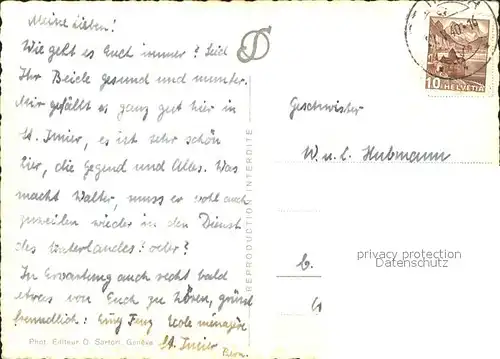 Meine Lieben!
Wie geht es Euch immer? Seid
Ihr Beide gesund und munter.
Mir gefällt es ganz gut hier in
St. Imier, es ist sehr schön
hier, die Gegend und Alles. Was
macht Walter, muss er wohl auch
zuweilen wieder in den Dienst
des Vaterlandes? oder?
In Erwartung auch recht bald
etwas von Euch zu hören, grüsst
freundlich: Ecole ménagère
St. Imier
Bern.
Phot. Editeur O. Sartori, Genève
REPRODUCTION INTERDITE
10 HELVETIA
40-16
Geschwister
W. u. L. Hubmann
privacy protection
Datenschutz